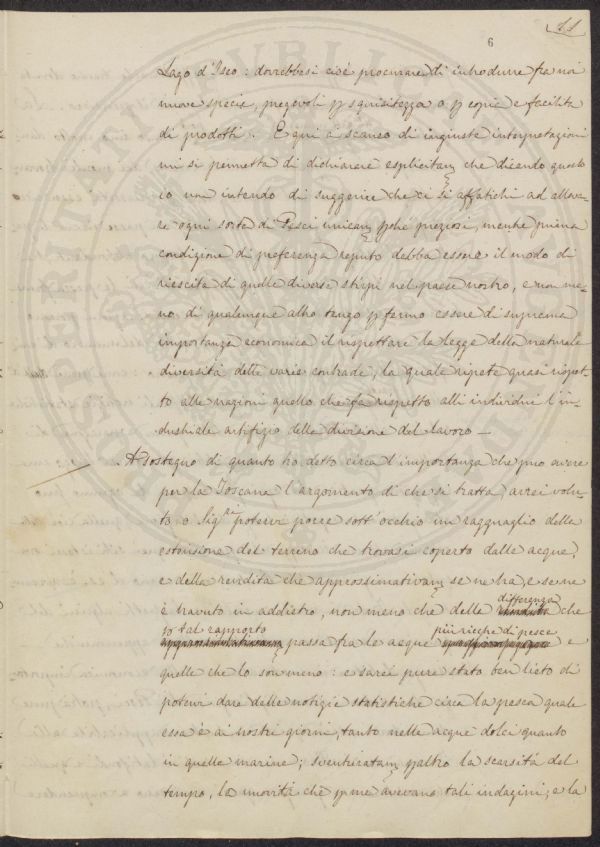 11
6
Lago d'Iseo: dovrebbesi cioè procurare di introdurre fra noi
nuove specie, pregevoli p squisitezza o p copia e facilità
di prodotti. E qui a scanso di ingiuste interpretazioni
mi si permetta di dichiarare esplicitam che dicendo questo
io non intendo di suggerire che ci si affatichi ad alleva-
re ogni sorta di Pesci unicam pchè preziosi, mentre prima
condizione di preferenza reputo debba essere il modo di
riescita di quelle diverse stirpi nel paese nostro, e non me-
no di qualunque altro tengo p fermo essere di suprema
importanza economica il rispettare la legge della naturale
diversità delle varie contrade, la quale ripete quasi rispet-
to alle nazioni quello che fa rispetto alli individui l'in-
dustriale artifizio della divisione del lavoro —
A sostegno di quanto ho detto circa l'importanza che può avere
per la Toscana l'argomento di che si tratta, avrei volu-
to o Sigri potervi porre sott'occhio un ragguaglio della
estensione del terreno che trovasi coperto dalle acque,
e della rendita che approssimativam se ne ha, e se ne
è travuto in addietro, non meno che della differenza che
p tal rapporto passa fra le acque più ricche di pesce e
quelle che lo son meno: e sarei pure stato ben lieto di
potervi dare delle notizie statistiche circa la pesca quale
essa è ai nostri giorni, tanto nelle acque dolci quanto
in quelle marine; sventuratam paltro la scarsità del
tempo, la novità che p me avevano tali indagini, e la